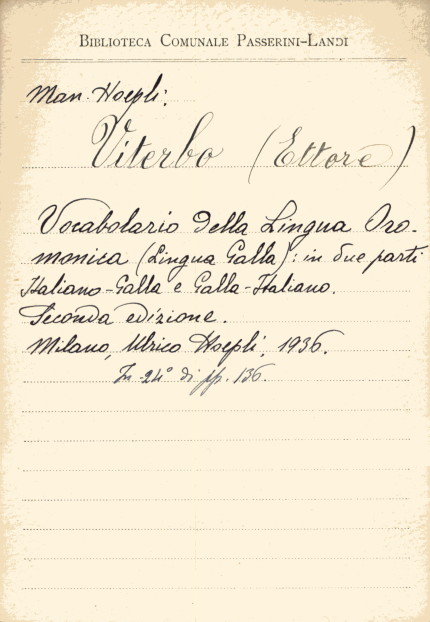 BIBLIOTECA COMUNALE PASSERINI-LANDI
Man. Hoepli.
Viterbo (Ettore)
Vocabolario della Lingua Oro-
monica (Lingua Galla): in due parti
Italiano-Galla e Galla-Italiano.
Seconda edizione.
Milano, Ulrico Hoepli, 1936.
In-24° di pp. 136.